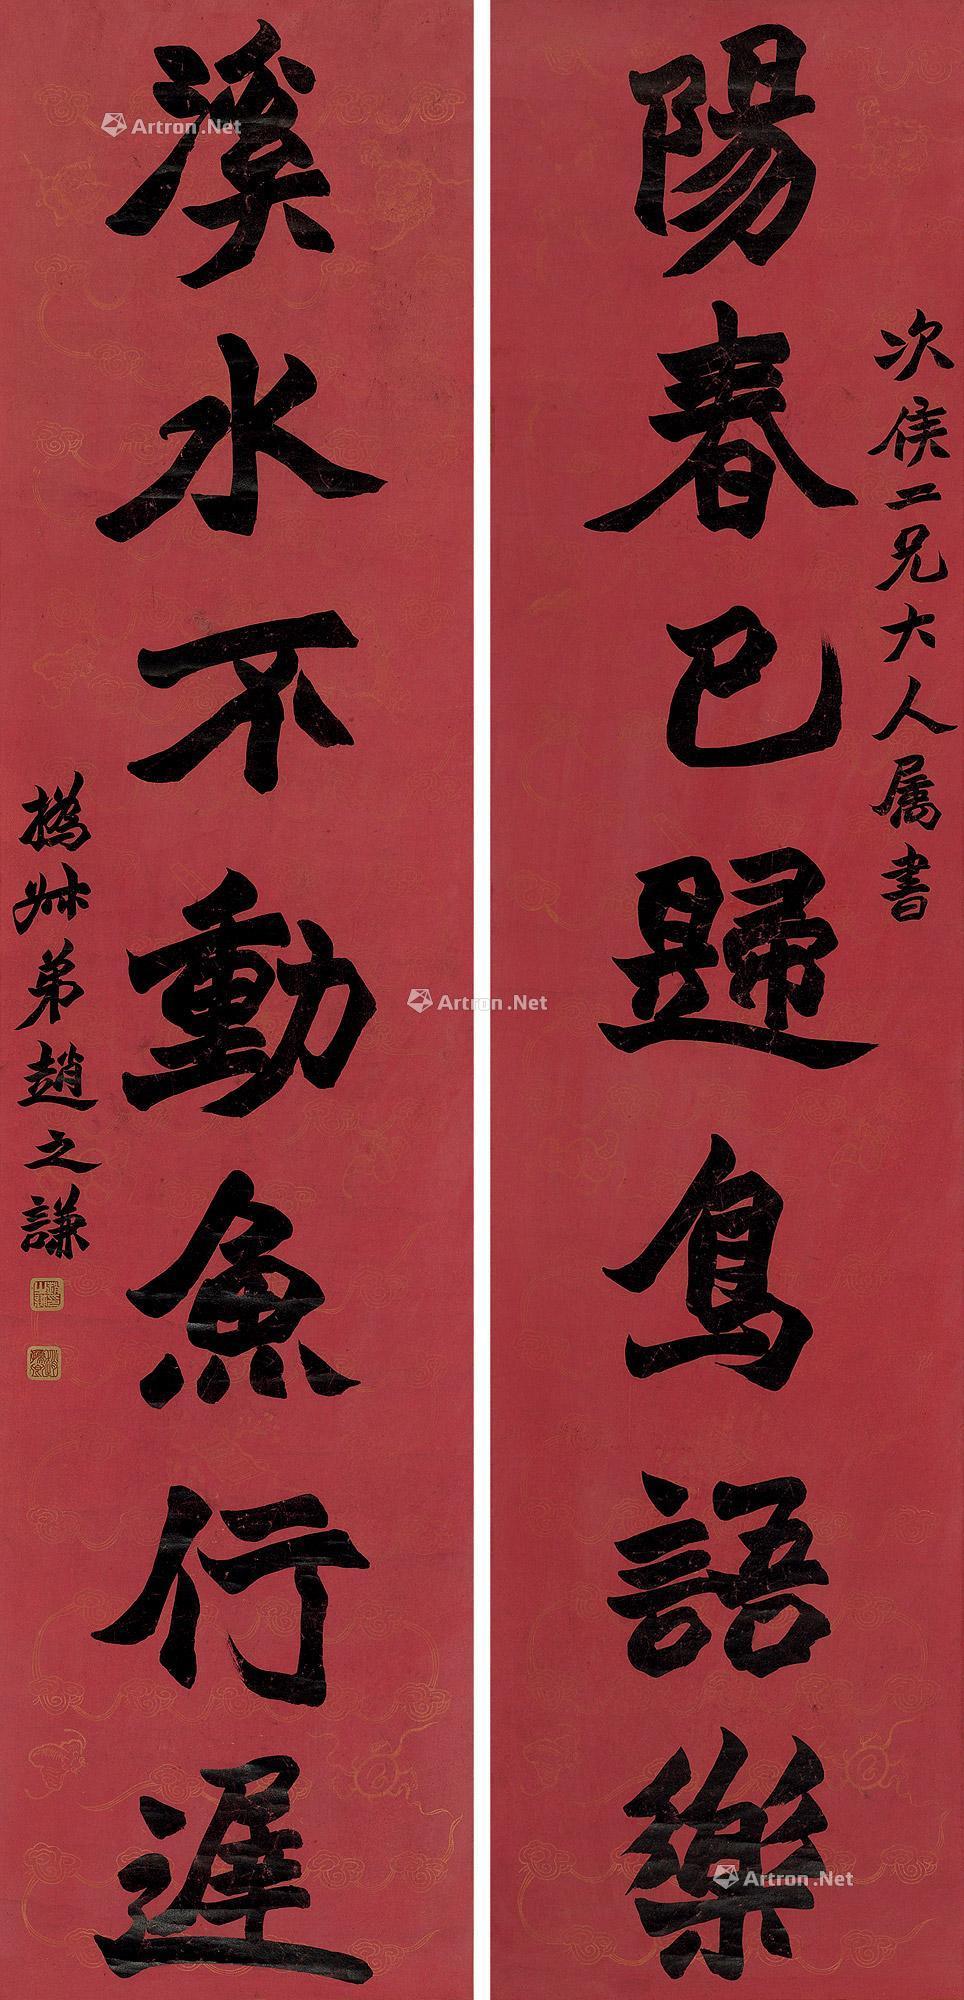 次侯二兄大人属書
陽春已歸鳥語樂
溪水不動魚行遲
撝叔弟趙之謙
Artron.Net
Artron.Net
Artron.Net